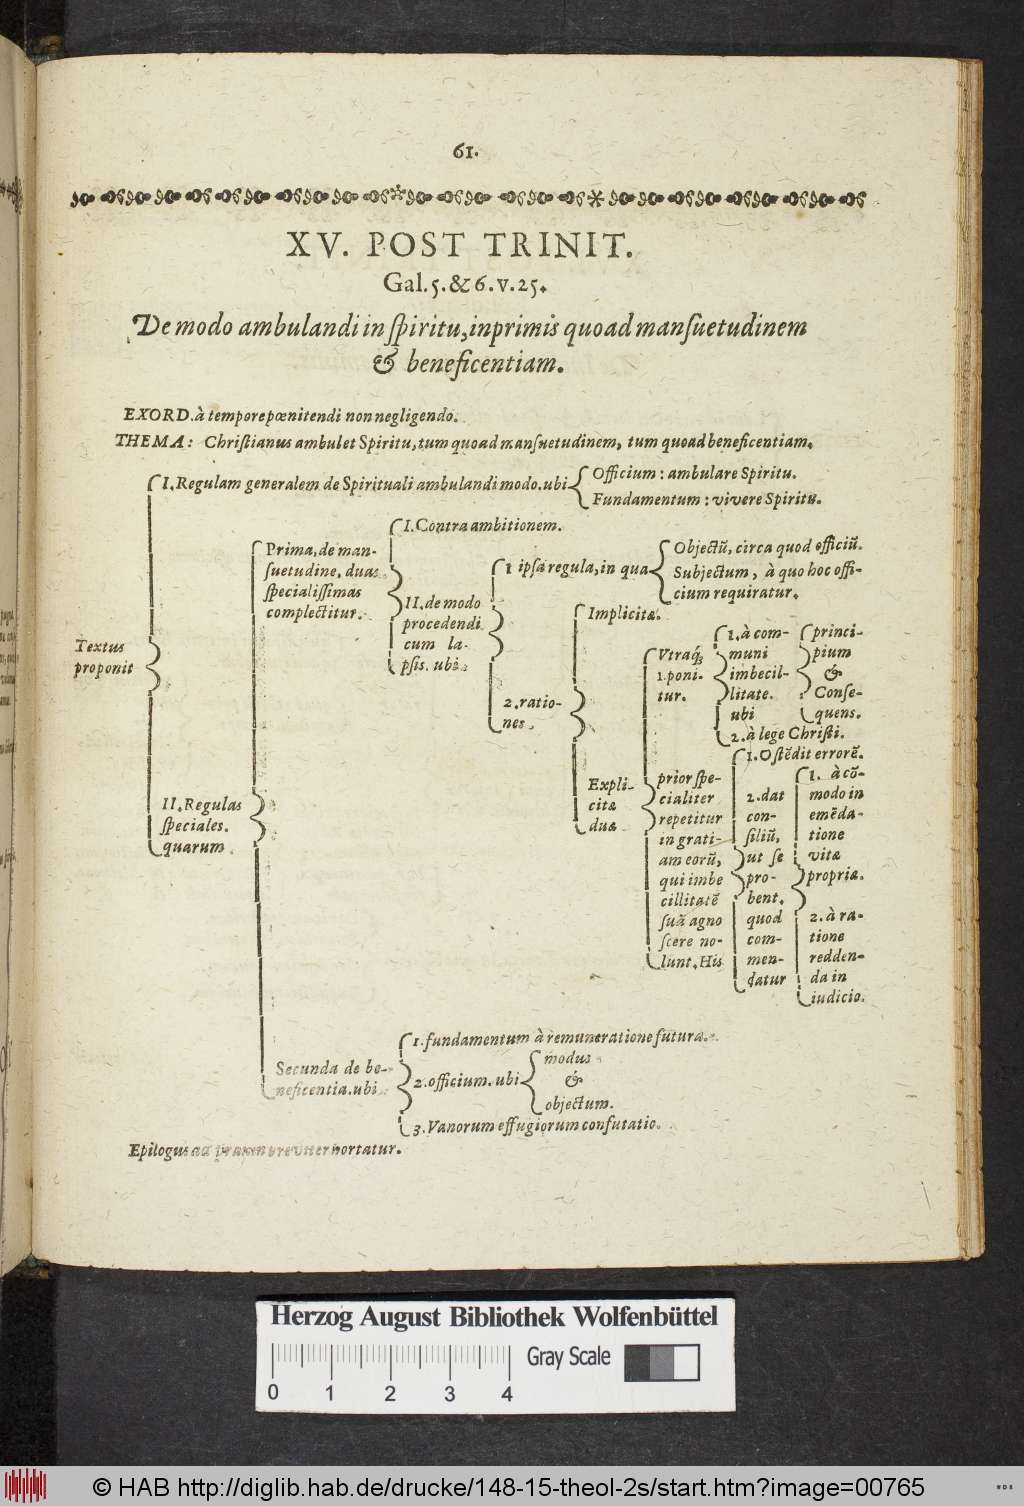 61.
XV. POST TRINIT.
Gal. 5. & 6. v. 25.
De modo ambulandi in ſpiritu, inprimis quoad manſuetudinem
& beneficentiam.
EXORD. à tempore pœnitendi non negligendo.
THEMA: Chriſtianus ambulet Spiritu, tum quoad manſuetudinem, tum quoad beneficentiam.
Textus
proponit
I. Regulam generalem de Spirituali ambulandi modo. ubi
Officium: ambulare Spiritu.
Fundamentum: vivere Spiritu.
II. Regulas
ſpeciales.
quarum
Prima, de man-
ſuetudine, duas
ſpecialiſſimas
complectitur.
I. Contra ambitionem.
II. de modo
procedendi
cum la-
pſis. ubi
1 ipſa regula, in qua
Objectū, circa quod officiū.
Subjectum, à quo hoc offi-
cium requiratur.
2. ratio-
nes
Implicitæ.
Expli-
citæ
duæ
Vtraq́;
1. poni-
tur.
1. à com-
muni
imbecil-
litate.
ubi
princi-
pium
&
Conſe-
quens.
2. à lege Chriſti.
prior ſpe-
cialiter
repetitur
in grati-
am eorū,
qui imbe
cillitatē
ſuā agno
ſcere no-
lunt. His
1. Oſtēdit errorē.
2. dat
con-
ſiliū,
ut ſe
pro-
bent.
quod
com-
men-
datur
1. à cō-
modo in
emēda-
tione
vitæ
propriæ.
2. à ra-
tione
redden-
da in
iudicio.
Secunda de be-
neficentia. ubi
1. fundamentum à remuneratione futura.
2. officium. ubi
modus
&
objectum.
3. Vanorum effugiorum confutatio.
Epilogus ad praxin breviter hortatur.
Herzog August Bibliothek Wolfenbüttel
0 1 2 3 4
Gray Scale
© HAB http://diglib.hab.de/drucke/148-15-theol-2s/start.htm?image=00765